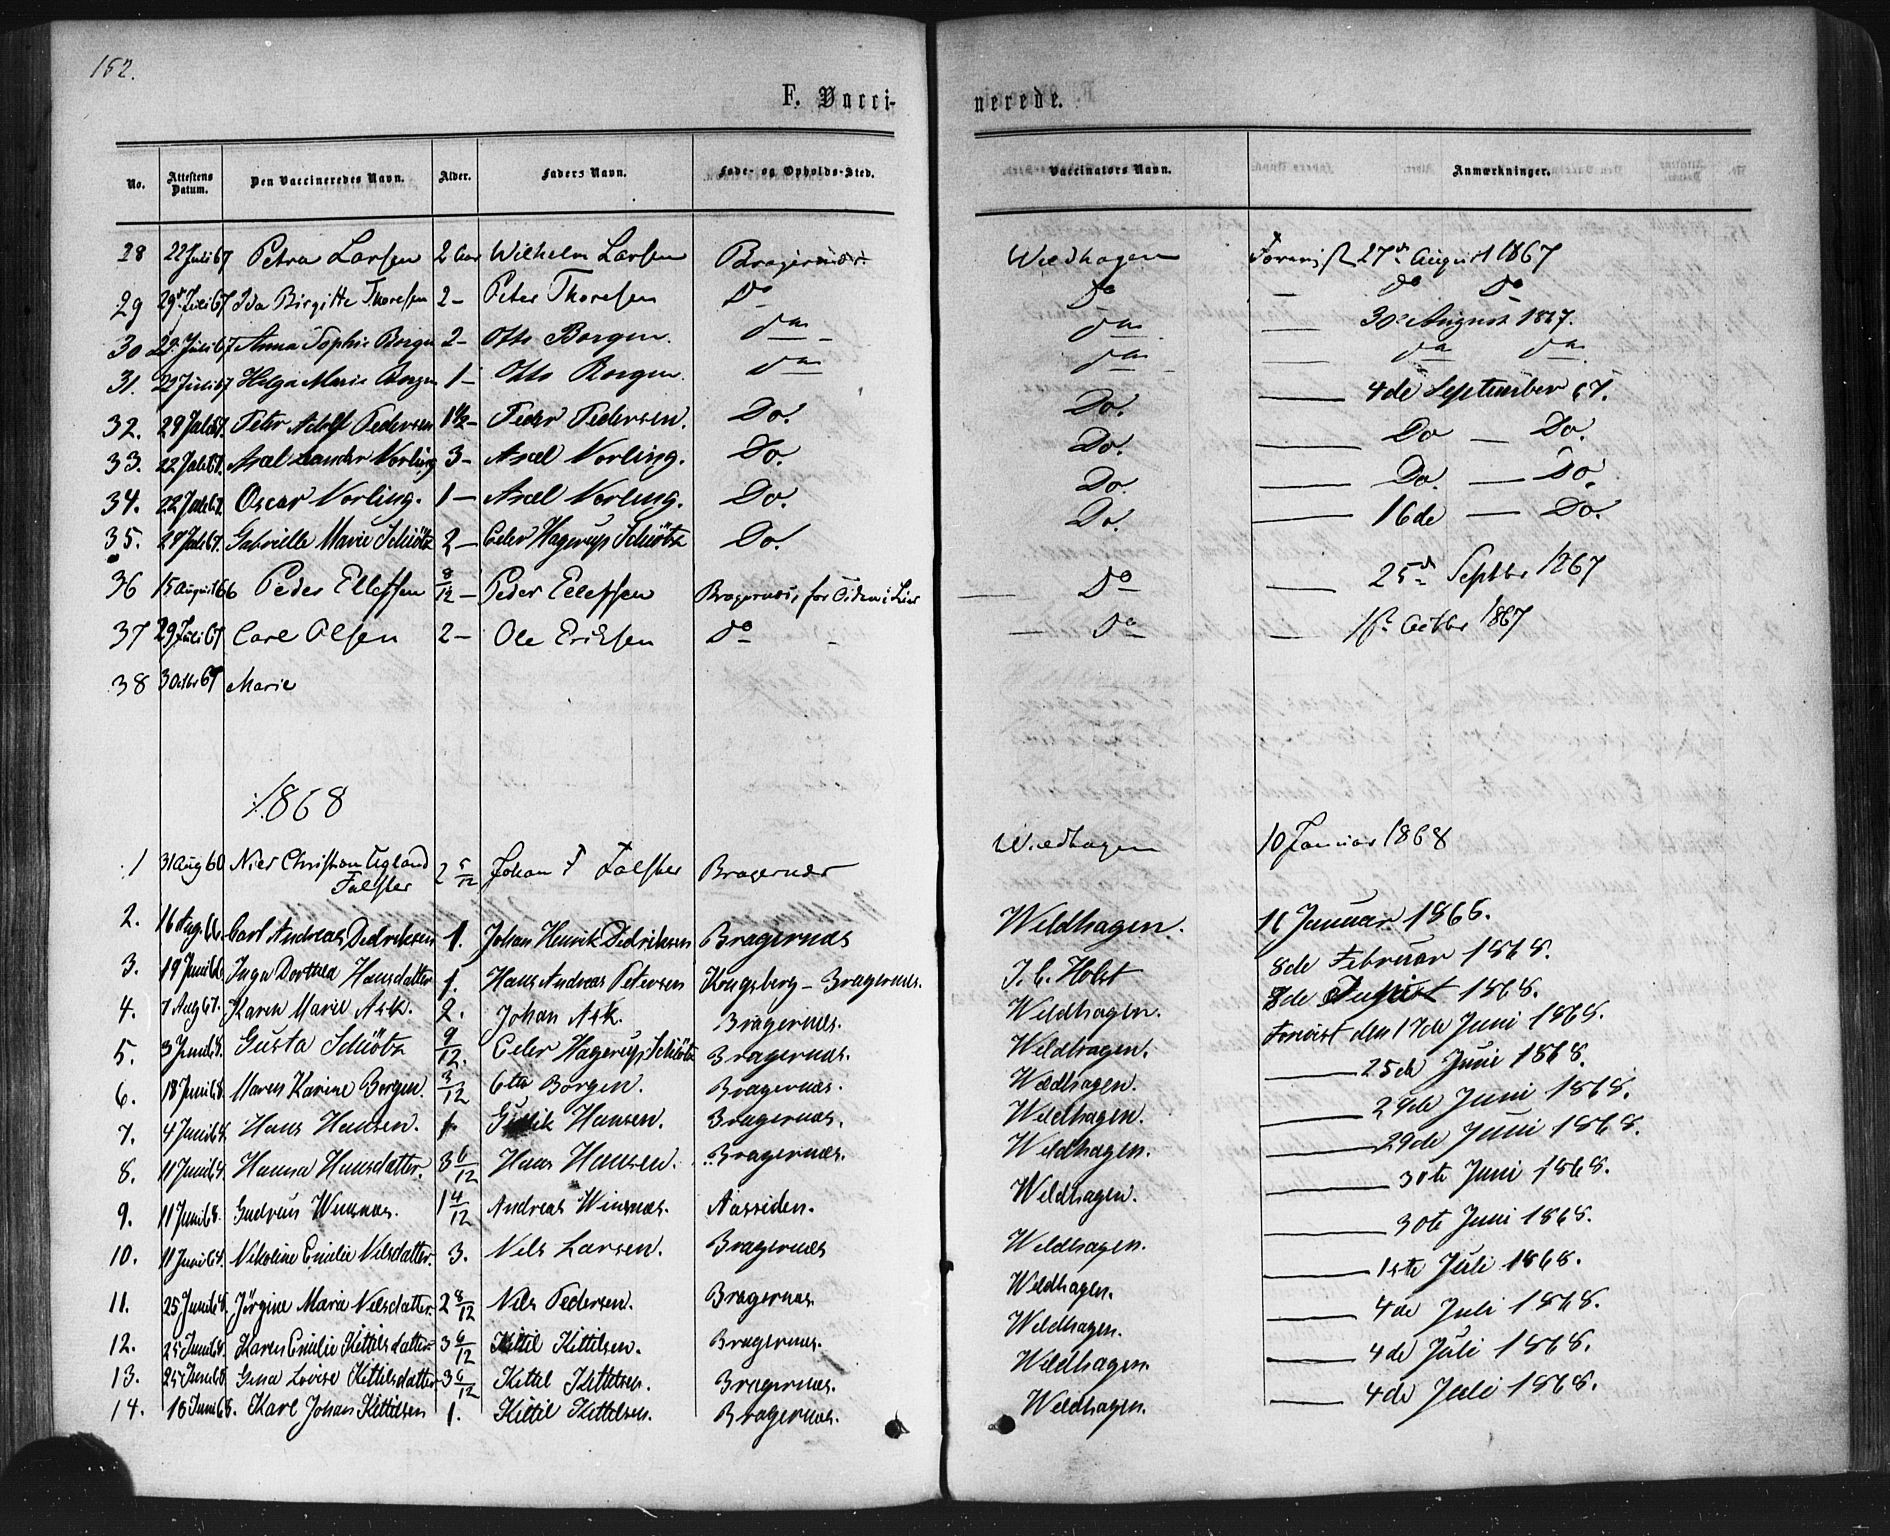 152.
F. Vacci-
nerede.
No. | Attestens Datum. | Den Vaccineredes Navn. | Alder. | Faders Navn. | Føde- og Opholds-Sted. | Vaccinators Navn. | Anmærkninger.
28 | 22 Juli 67 | Petra Larsen | 2 Aar | Wilhelm Larsen | Bragernæs. | Wieldhagen | Forevist 27de August 1867
29 | 29de Juli 67 | Ida Birgitte Thoresen | 2 – | Peter Thoresen | Do | Do | — do Do
30 | 29 Juli 67 | Anna Sophie Borgen | 2 – | Otto Borgen. | do | do | — 30 August 1867.
31. | 29 Juli 67 | Helga Marie Borgen | 1 – | Otto Borgen. | do | do | — do do
32. | 29 Juli 67. | Peter Adolf Pedersen | 1½ – | Peder Pedersen. | Do. | Do. | — 4de September 67.
33. | 22 Juli 67. | Axel Leander Norling | 3 – | Axel Norling. | Do. | Do. | — Do — Do.
34. | 22 Juli 67. | Oscar Norling. | 1 – | Axel Norling. | Do. | Do. | — Do. — Do.
35. | 29 Juli 67. | Gabrielle Marie Schiötz | 2 – | Eeler Hagerup Schiötz | Do. | Do. | — 16de — Do.
36 | 15 August 66 | Peder Ellefsen | 8/12 – | Peder Ellefsen | Bragernæs, før Osden i Lier | — Do | — 25de Septbr 1867
37 | 29 Juli 67 | Carl Olsen | 2 – | Ole Eriksen | Do | — Do | — 1ste Octbr 1867
38 | 3 Octbr 67 | Marie
1868
1 | 31 Aug 60 | Niels Christian Tegland Falster | 2 5/12 | Johan F Falster | Bragernæs | Wieldhagen | 10 Januar 1868
2. | 16 Aug. 66. | Carl Andreas Dedriksen | 1. | Johan Henrik Dedriksen | Bragernæs | Weldhagen. | 11 Januar 1868.
3. | 19 Juni 66 | Inga Dorthea Hansdatter | 1. | Hans Andreas Petersen | Kongsberg – Bragernæs. | J. C. Holst | 8de Februar 1868.
4. | 7 Aug 67. | Karen Marie Ask. | 2. | Johan Ask. | Bragernæs. | Weldhagen. | 8de August 1868.
5. | 3 Juni 68. | Gusta Schiötz | 9/12. | Eeler Hagerup Schiötz | Bragernæs. | Weldhagen. | Forevist den 17de Juni 1868.
6. | 18 Juni 68. | Maren Karine Borgen. | 3/12 | Otto Borgen. | Bragernæs. | Weldhagen. | — 25de Juni 1868.
7. | 4 Juni 68. | Hans Hansen. | 1. | Gullik Hansen. | Bragernæs. | Weldhagen. | — 29de Juni 1868.
8. | 11 Juni 68. | Hanna Hansdatter. | 3 6/12 | Hans Hansen. | Bragernæs. | Weldhagen. | — 29de Juni 1868.
9. | 11 Juni 68. | Gudrun Winsnæs. | 1 4/12 | Andreas Winsnæs. | Aassiden. | Weldhagen. | — 30te Juni 1868.
10. | 11 Juni 68. | Nikoline Emilie Nilsdatter. | 3. | Nils Larsen. | Bragernæs | Weldhagen. | — 30te Juni 1868.
11. | 25 Juni 68. | Jørgine Marie Nilsdatter. | 2 8/12 | Nils Pedersen. | Bragernæs | Weldhagen. | — 1ste Juli 1868.
12. | 25 Juni 68. | Karen Emilie Kittilsdatter | 3 6/12 | Kittil Kittilsen. | Bragernæs. | Weldhagen. | — 4de Juli 1868.
13. | 25 Juni 68. | Gina Lovise Kittilsdatter | 3 6/12 | Kittil Kittilsen. | Bragernæs. | Weldhagen. | — 4de Juli 1868.
14. | 18 Juni 68. | Karl Johan Kittilsen | 1. | Kittil Kittilsen. | Bragernæs. | Weldhagen. | — 4de Juli 1868.